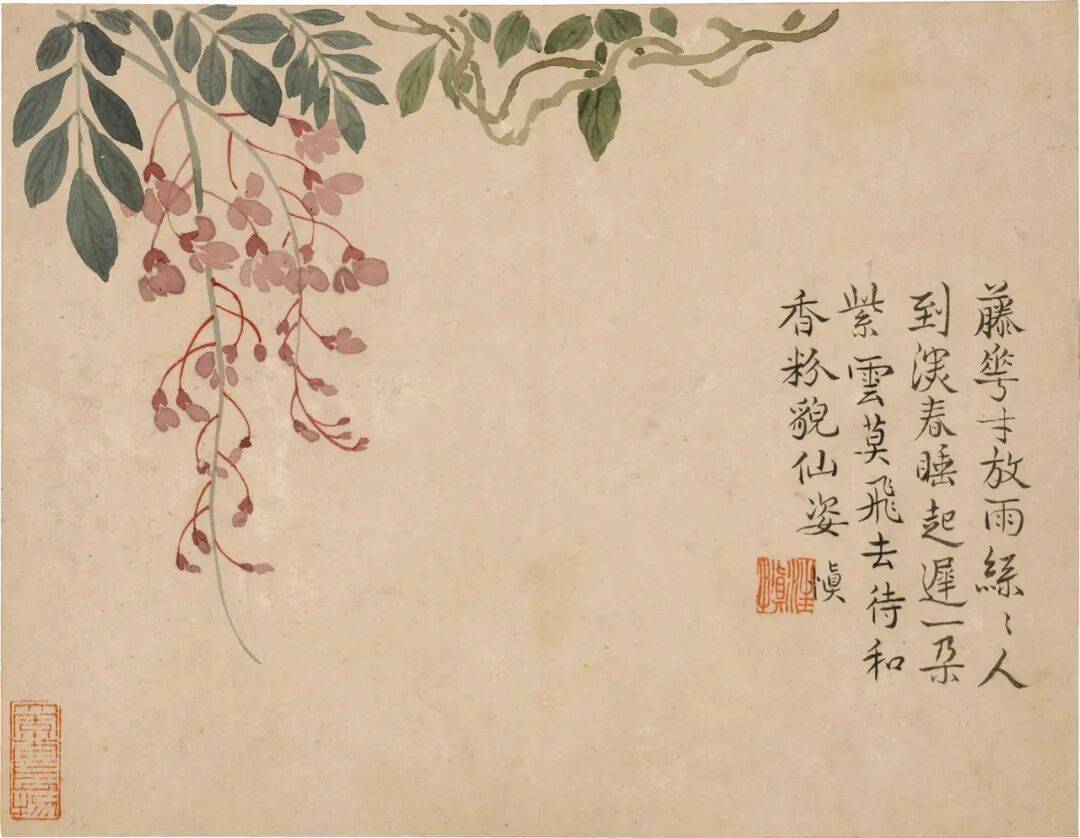 藤華才放雨絲〻人
到深春睡起遲一朶
紫雲莫飛去待和
香粉貌仙姿
慎